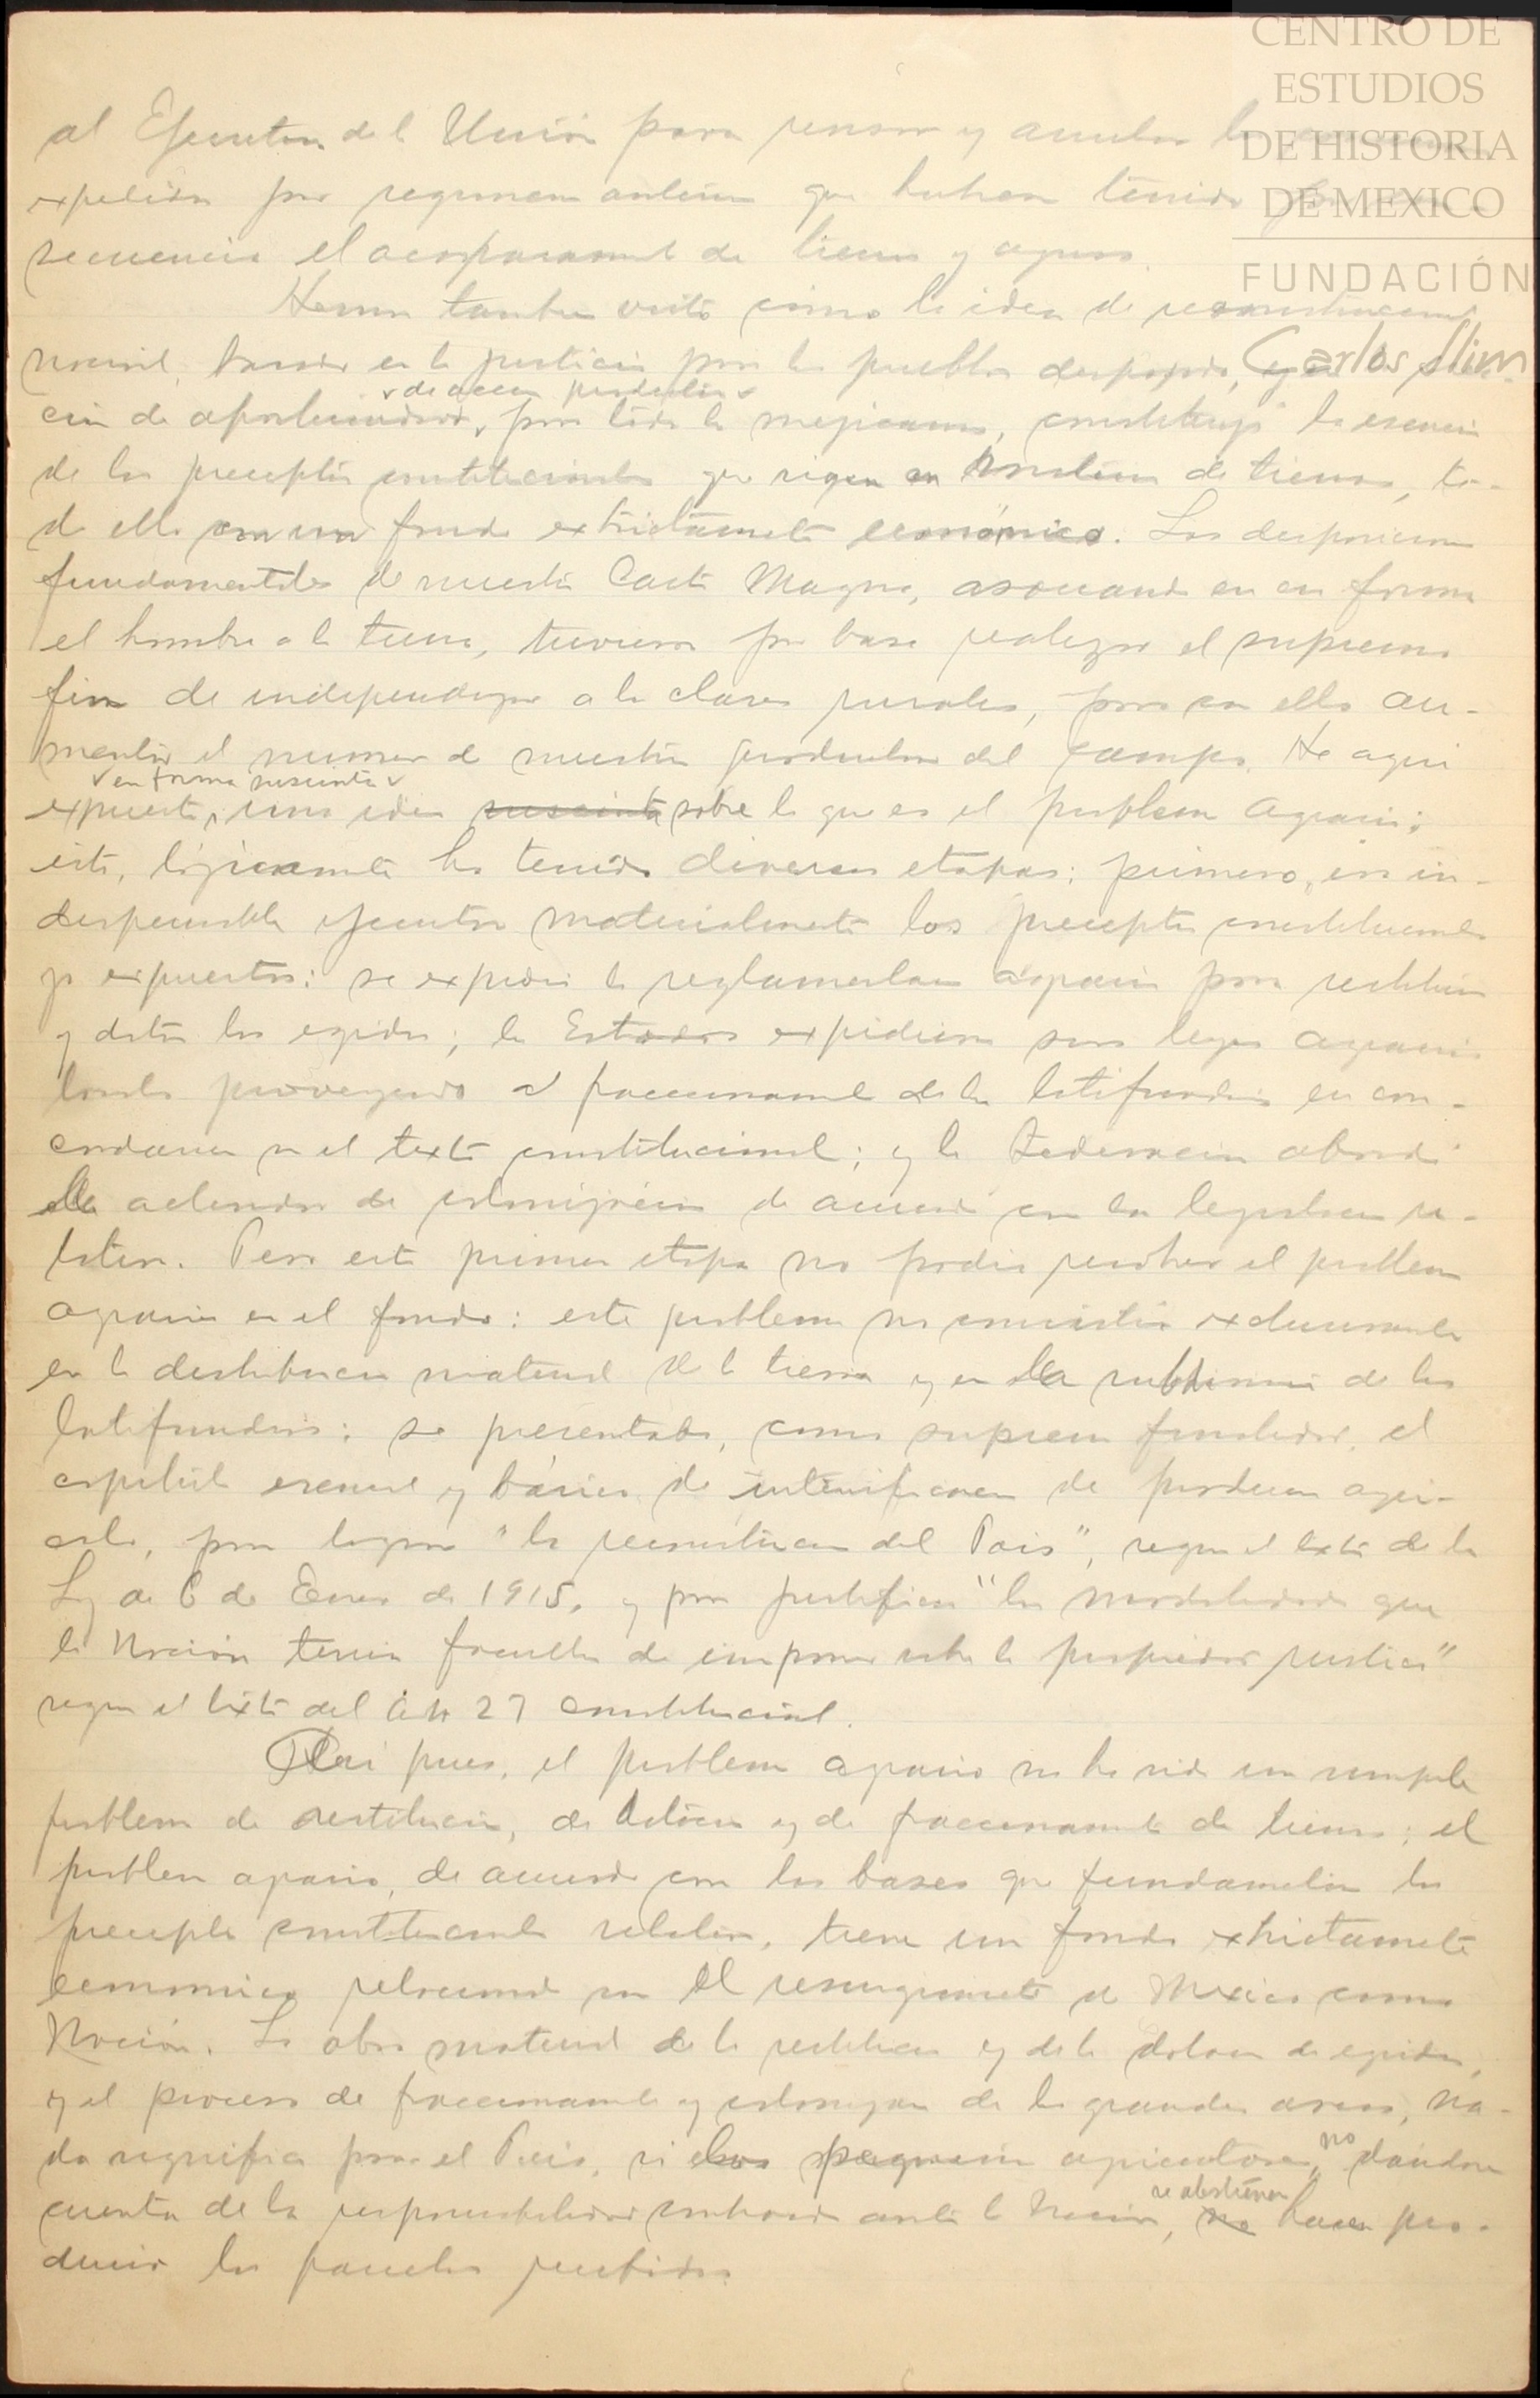 CENTRO DE
ESTUDIOS
DE HISTORIA
DE MEXICO
FUNDACIÓN
Carlos Slim
al Ejecutivo de l Unión para revisar y anular
expedidas por regimenes anteriores que hubieran tenido por con-
secuencia el acaparamiento de tierras y aguas.
Hemos tambien visto cómo la idea de reconstruccion
nacional, basada en la justicia para los pueblos despojados,
v de accion productiva v
cia de oportunidades, para todos los mejicanos, constituyó la esencia
de los preceptos constitucionales que rigen en materia de tierras, to-
do ello con un fondo extrictamente económico. Las disposiciones
fundamentales de nuestra Carta Magna, asociando en esa forma
el hombre a la tierra, tuvieron por base realizar el supremo
fin de independizar a las clases rurales, para con ello au-
mentar el numero de nuestros productores del campo. He aqui
v en forma suscinta v
expuesta, una idea suscinta sobre lo que es el problema agrario;
éste, lógicamente ha tenido diversas etapas: primero, era in-
despensable ejecutar materialmente los preceptos constitucionales
ya expuestos: se expidió la reglamentacion agraria para restituir
y dotar los egidos; los Estados expidieron sus leyes agrarias
locales proveyendo al fraccionamiento de los latifundios en con-
cordancia con el texto constitucional; y la Federacion abordó
la de colonización de acuerdo con la legislacion re-
lativa. Pero esta primera etapa no podia resolver el problema
agrario en el fondo: este problema no consistia exclusivamente
en la distribucion material de la tierra y en la subdivision de los
latifundios: se presentaba, como supremo finalidad, el
capitulo esencial y básico de intensificacion de produccion agri-
cola, para lograr "la reconstruccion del Pais", segun el texto de la
Ley de 6 de Enero de 1915, y para justificar "las modalidades que
la Nación tenia facultad de imponer sobre la propiedad rustica"
segun el texto del Art 27 constitucional.
Asi pues, el problema agrario no ha sido un simple
problema de restitucion, de dotacion y de fraccionamiento de tierras; el
problema agrario, de acuerdo con las bases que fundamentan los
preceptos constitucionales relativos, tiene un fondo extrictamente
economico relacionado con el resurgimiento de Mexico como
Nación. La obra material de la restitucion y de la dotacion de egidos,
y el proceso de fraccionamiento y colonizacion de las grandes areas, na-
da significa para el Pais, si los agricultores, no dandose
cuenta de la responsabilidad contraida ante la Nacion, no se abstienen hacer pro-
ducir las parcelas recibidas.